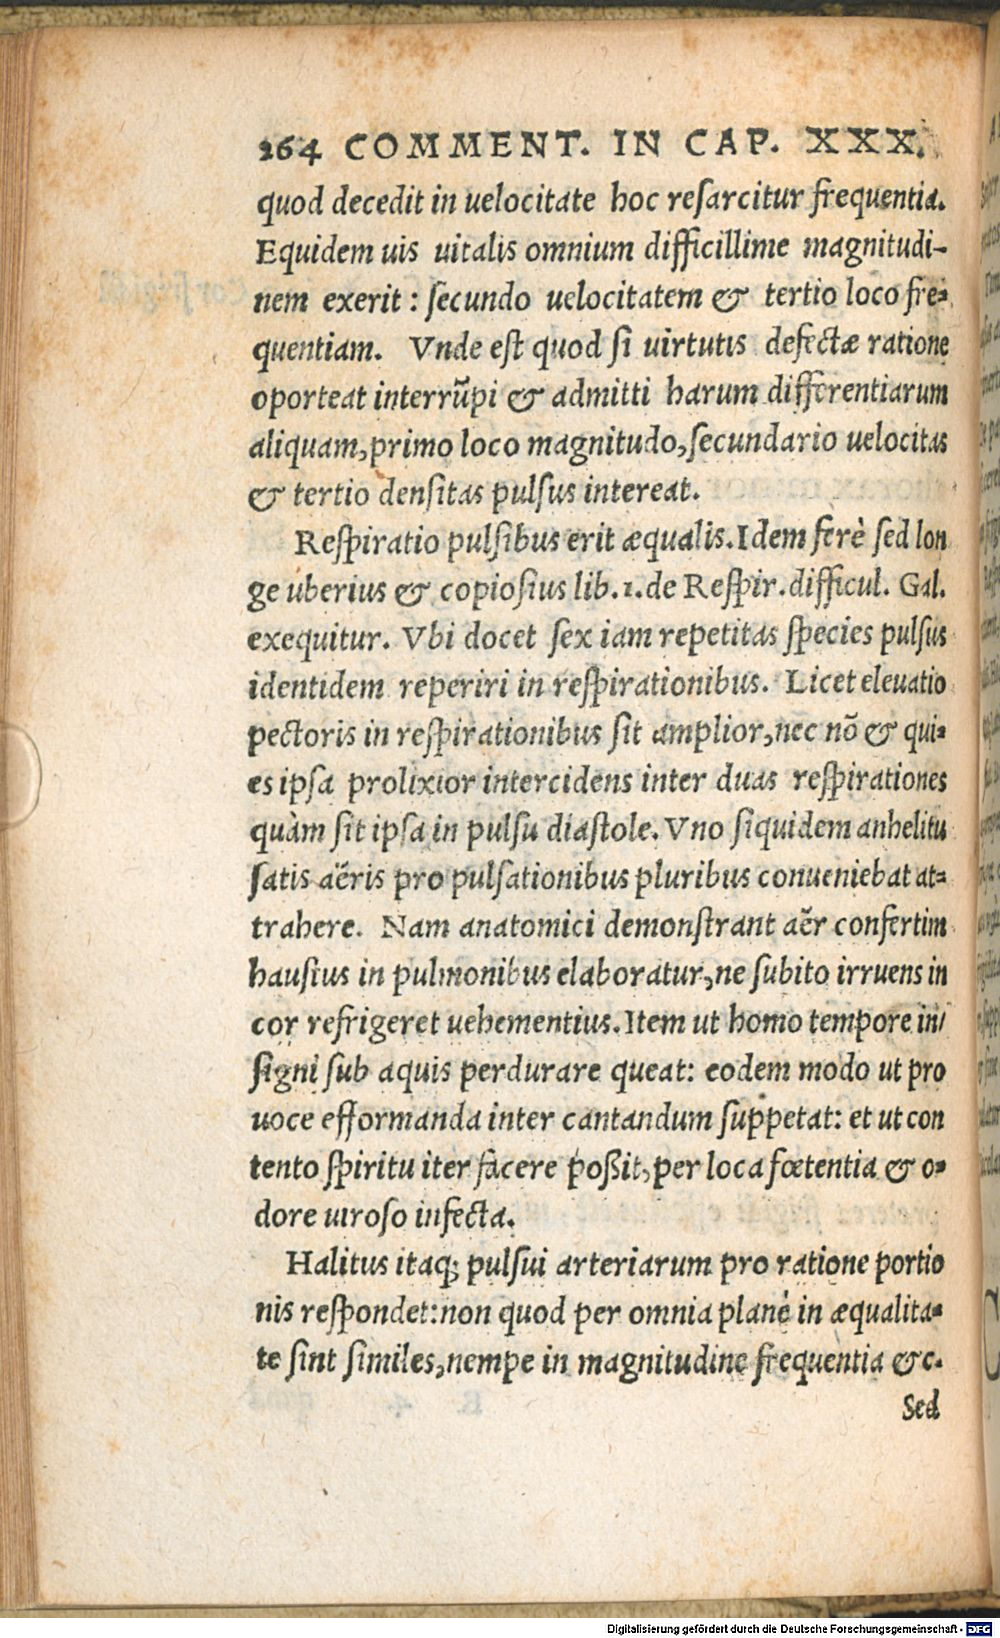 264 COMMENT. IN CAP. XXX.
quod decedit in uelocitate hoc resarcitur frequentia.
Equidem uis uitalis omnium difficillime magnitudi-
nem exerit: secundo uelocitatem & tertio loco fre-
quentiam. Vnde est quod si uirtutis defectæ ratione
oporteat interrũpi & admitti harum differentiarum
aliquam, primo loco magnitudo, secundario uelocitas
& tertio densitas pulsus intereat.
Respiratio pulsibus erit æqualis. Idem ferè sed lon
ge uberius & copiosius lib. 1. de Respir. difficul. Gal.
exequitur. Vbi docet sex iam repetitas species pulsus
identidem reperiri in respirationibus. Licet eleuatio
pectoris in respirationibus sit amplior, nec nõ & qui-
es ipsa prolixior intercidens inter duas respirationes
quàm sit ipsa in pulsu diastole. Vno siquidem anhelitu
satis aëris pro pulsationibus pluribus conueniebat at-
trahere. Nam anatomici demonstrant aër confertim
haustus in pulmonibus elaboratur, ne subito irruens in
cor refrigeret uehementius. Item ut homo tempore in/
signi sub aquis perdurare queat: eodem modo ut pro
uoce efformanda inter cantandum suppetat: et ut con
tento spiritu iter facere poßit, per loca fœtentia & o-
dore uiroso infecta.
Halitus itaq; pulsui arteriarum pro ratione portio
nis respondet: non quod per omnia planè in æqualita-
te sint similes, nempe in magnitudine frequentia &c.
Sed
Digitalisierung gefördert durch die Deutsche Forschungsgemeinschaft - DFG